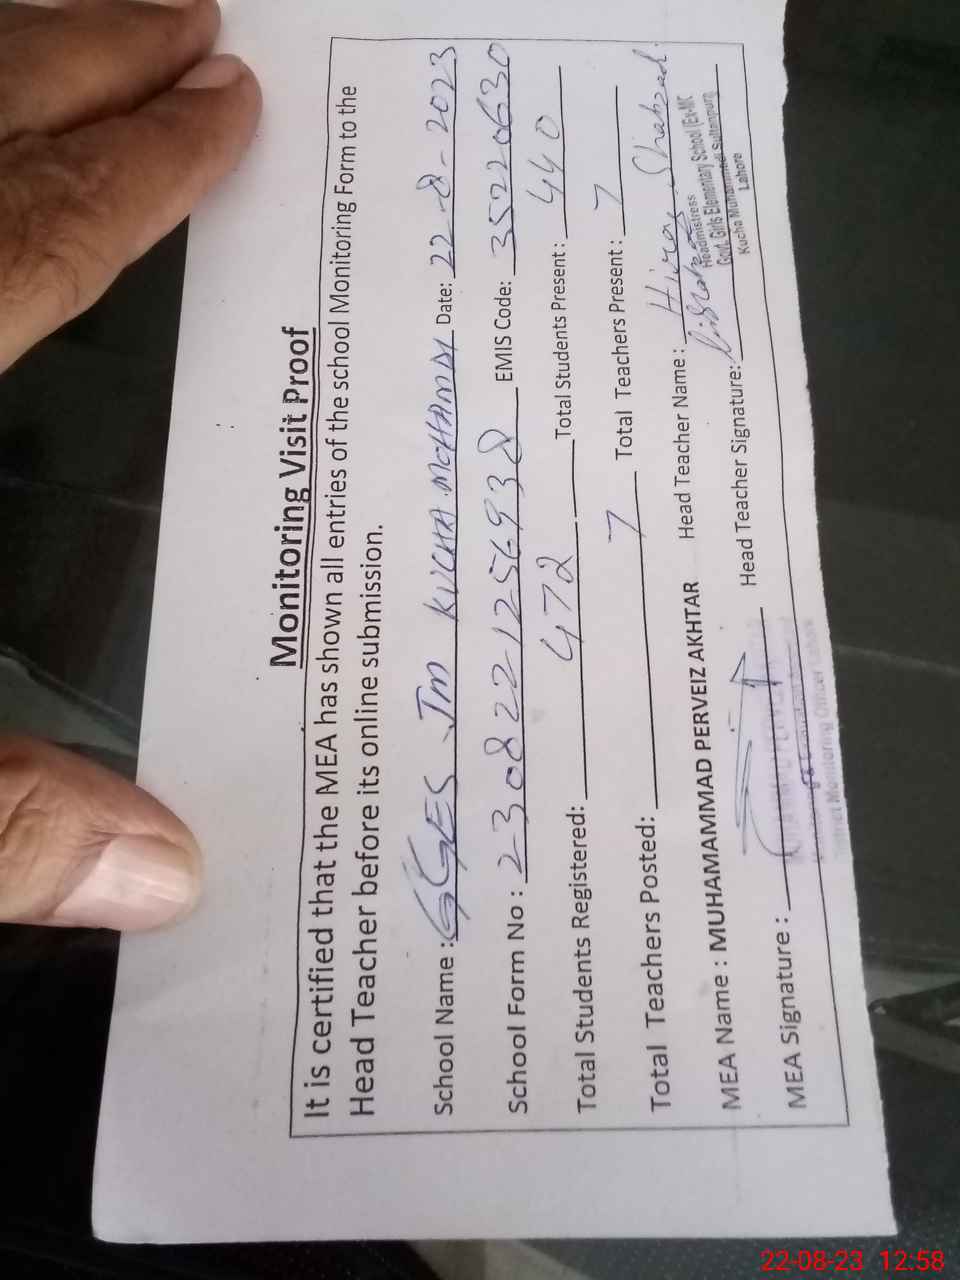 Monitoring Visit Proof
It is certified that the MEA has shown all entries of the school Monitoring Form to the
Head Teacher before its online submission.
School Name : GGES Jm KUCHA MOHAMADI Date: 22-8-2023
School Form No : 2308221256938 EMIS Code: 35220630
Total Students Registered: 472 Total Students Present : 440
Total Teachers Posted: 7 Total Teachers Present : 7
MEA Name : MUHAMAMMAD PERVEIZ AKHTAR Head Teacher Name : Shahzad
MEA Signature : Head Teacher Signature:
Headmistress
Govt. Girls Elementary School (Ex-MC
Kucha Muhammadi Sultanpura
Lahore
District Monitoring Officer Lahore
22-08-23 12.58